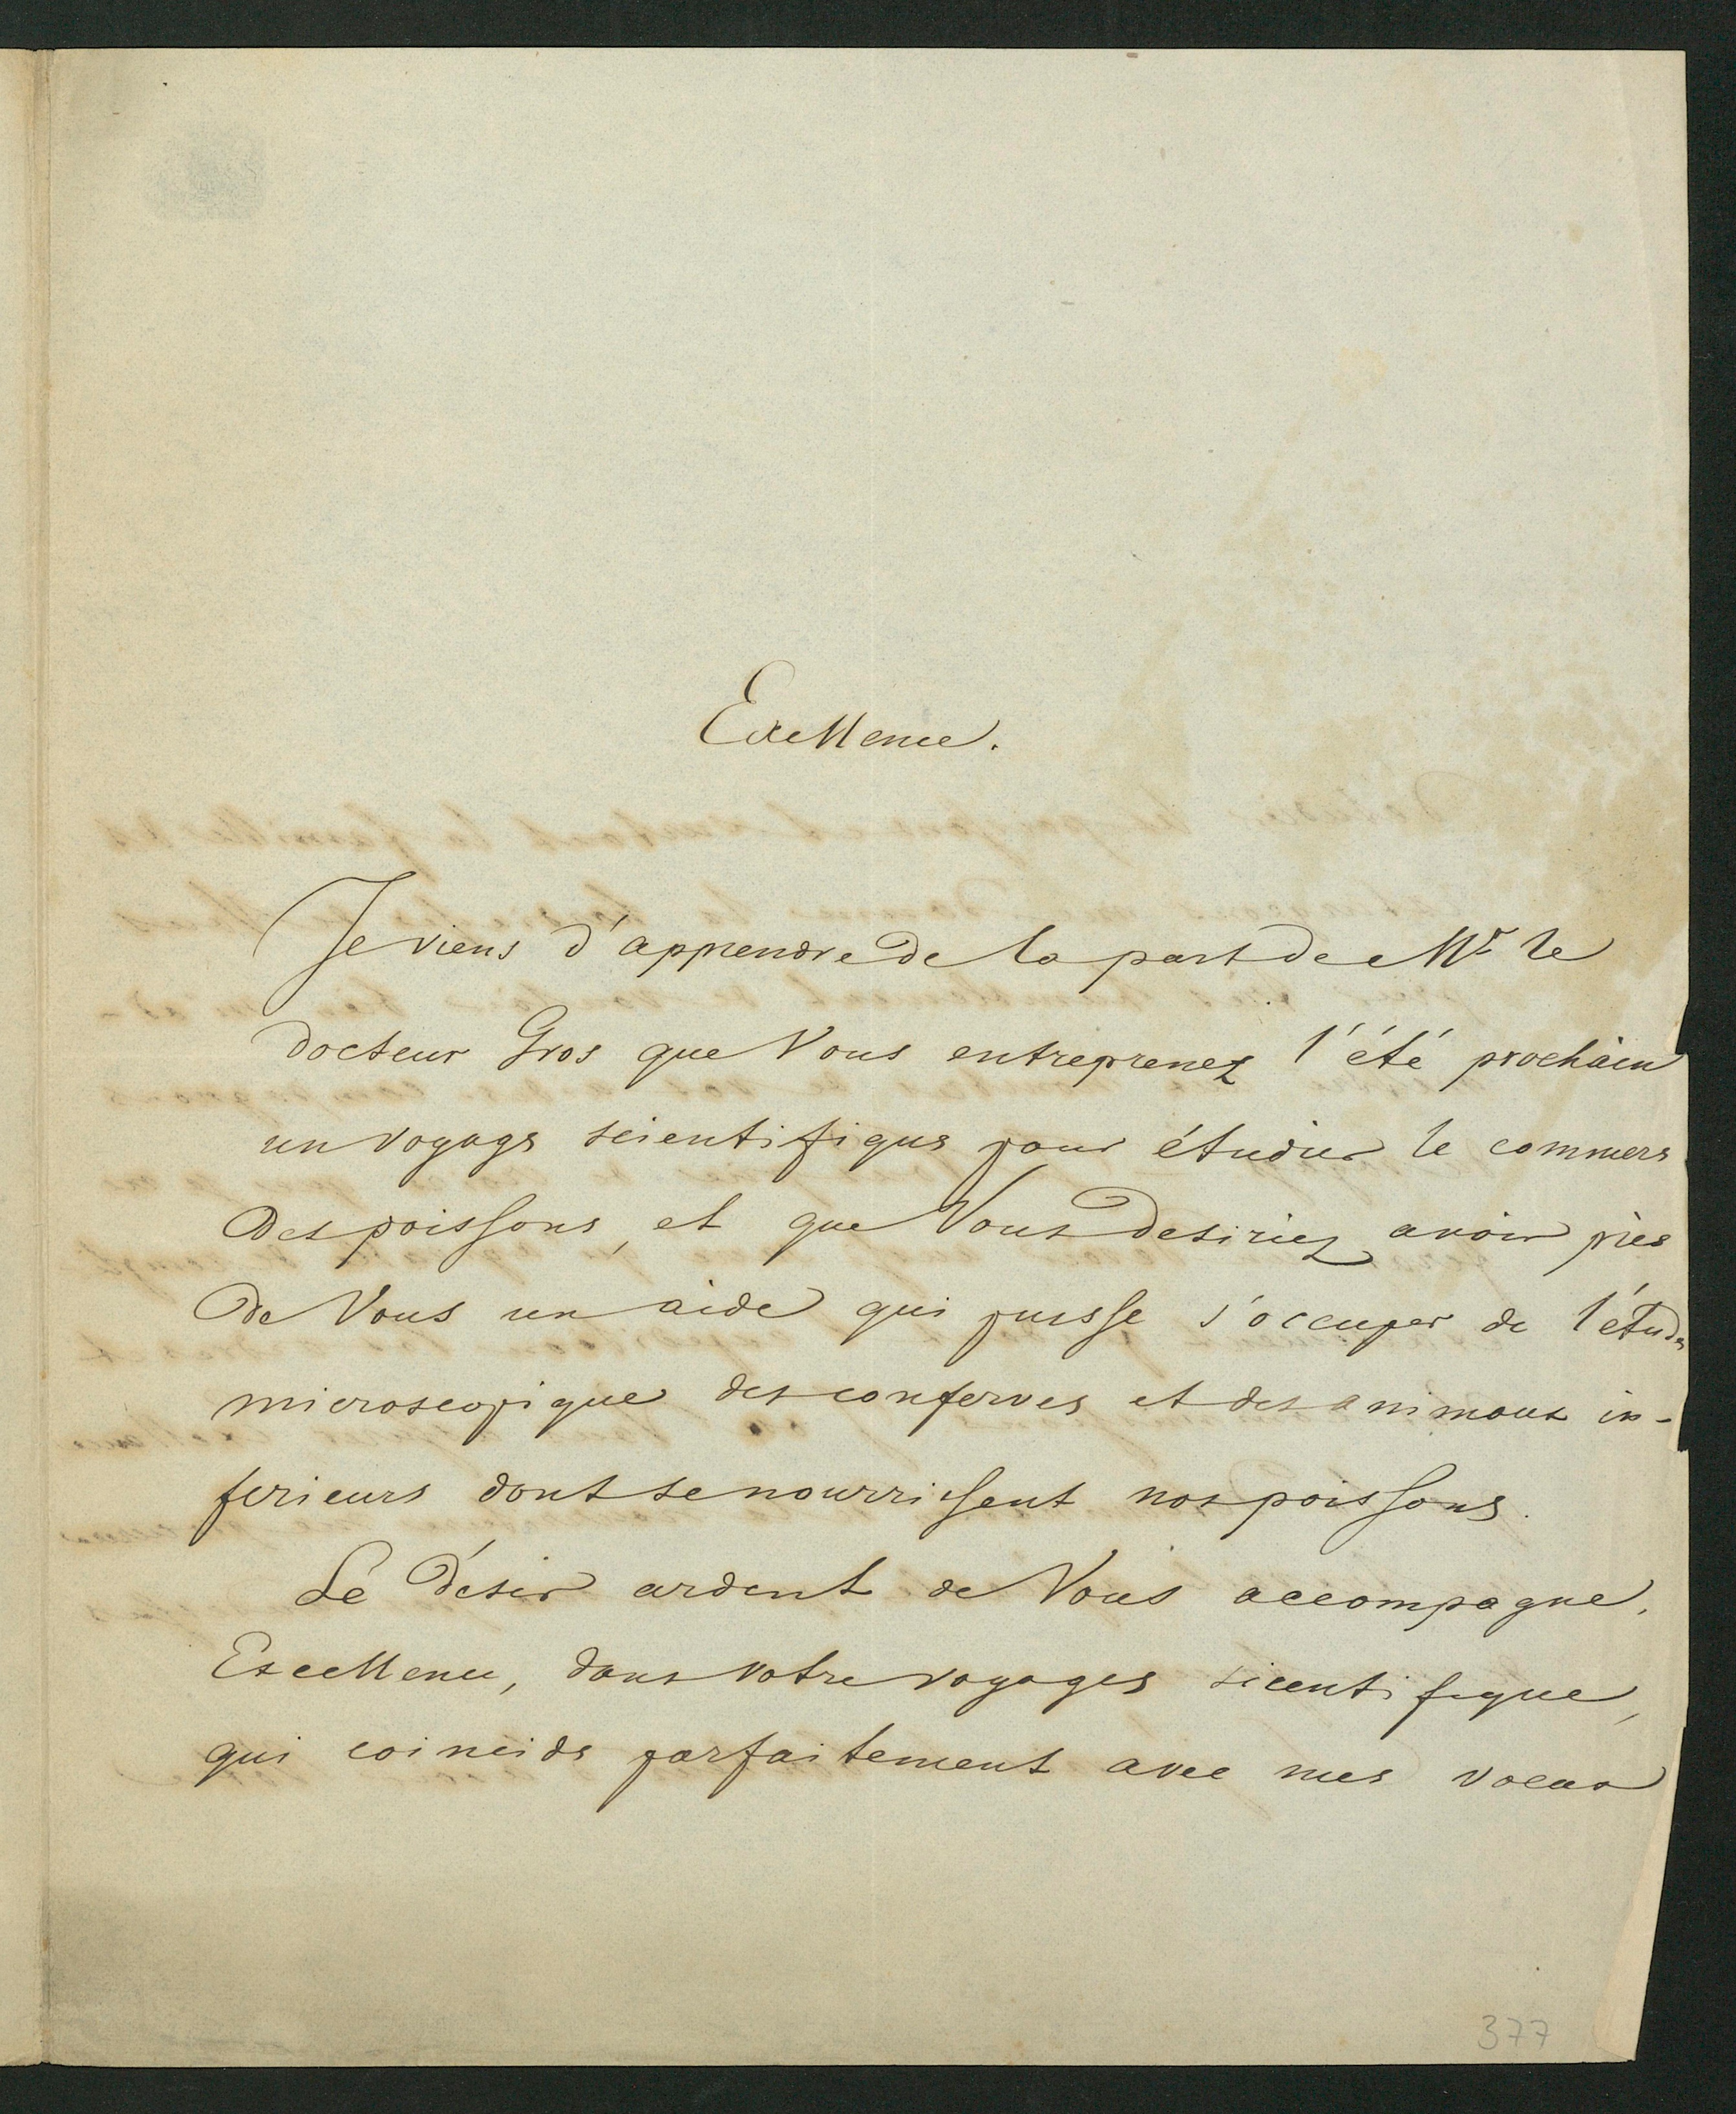 Excellence.
Je viens d'apprendre de la part de Mr le
docteur Gros que Vous entreprenez l'été prochain
un voyage scientifique pour étudier le commers
des poissons, et que Vous desiriez avoir près
de Vous un aide qui puisse s'occuper de l'étude
microscopique des conferves et des animaux in-
ferieurs dont se nourrissent nos poissons.
Le désir ardent de Vous accompagne,
Excellence, dans votre voyages sientifique,
qui coincide parfaitement avec mes voeux
377